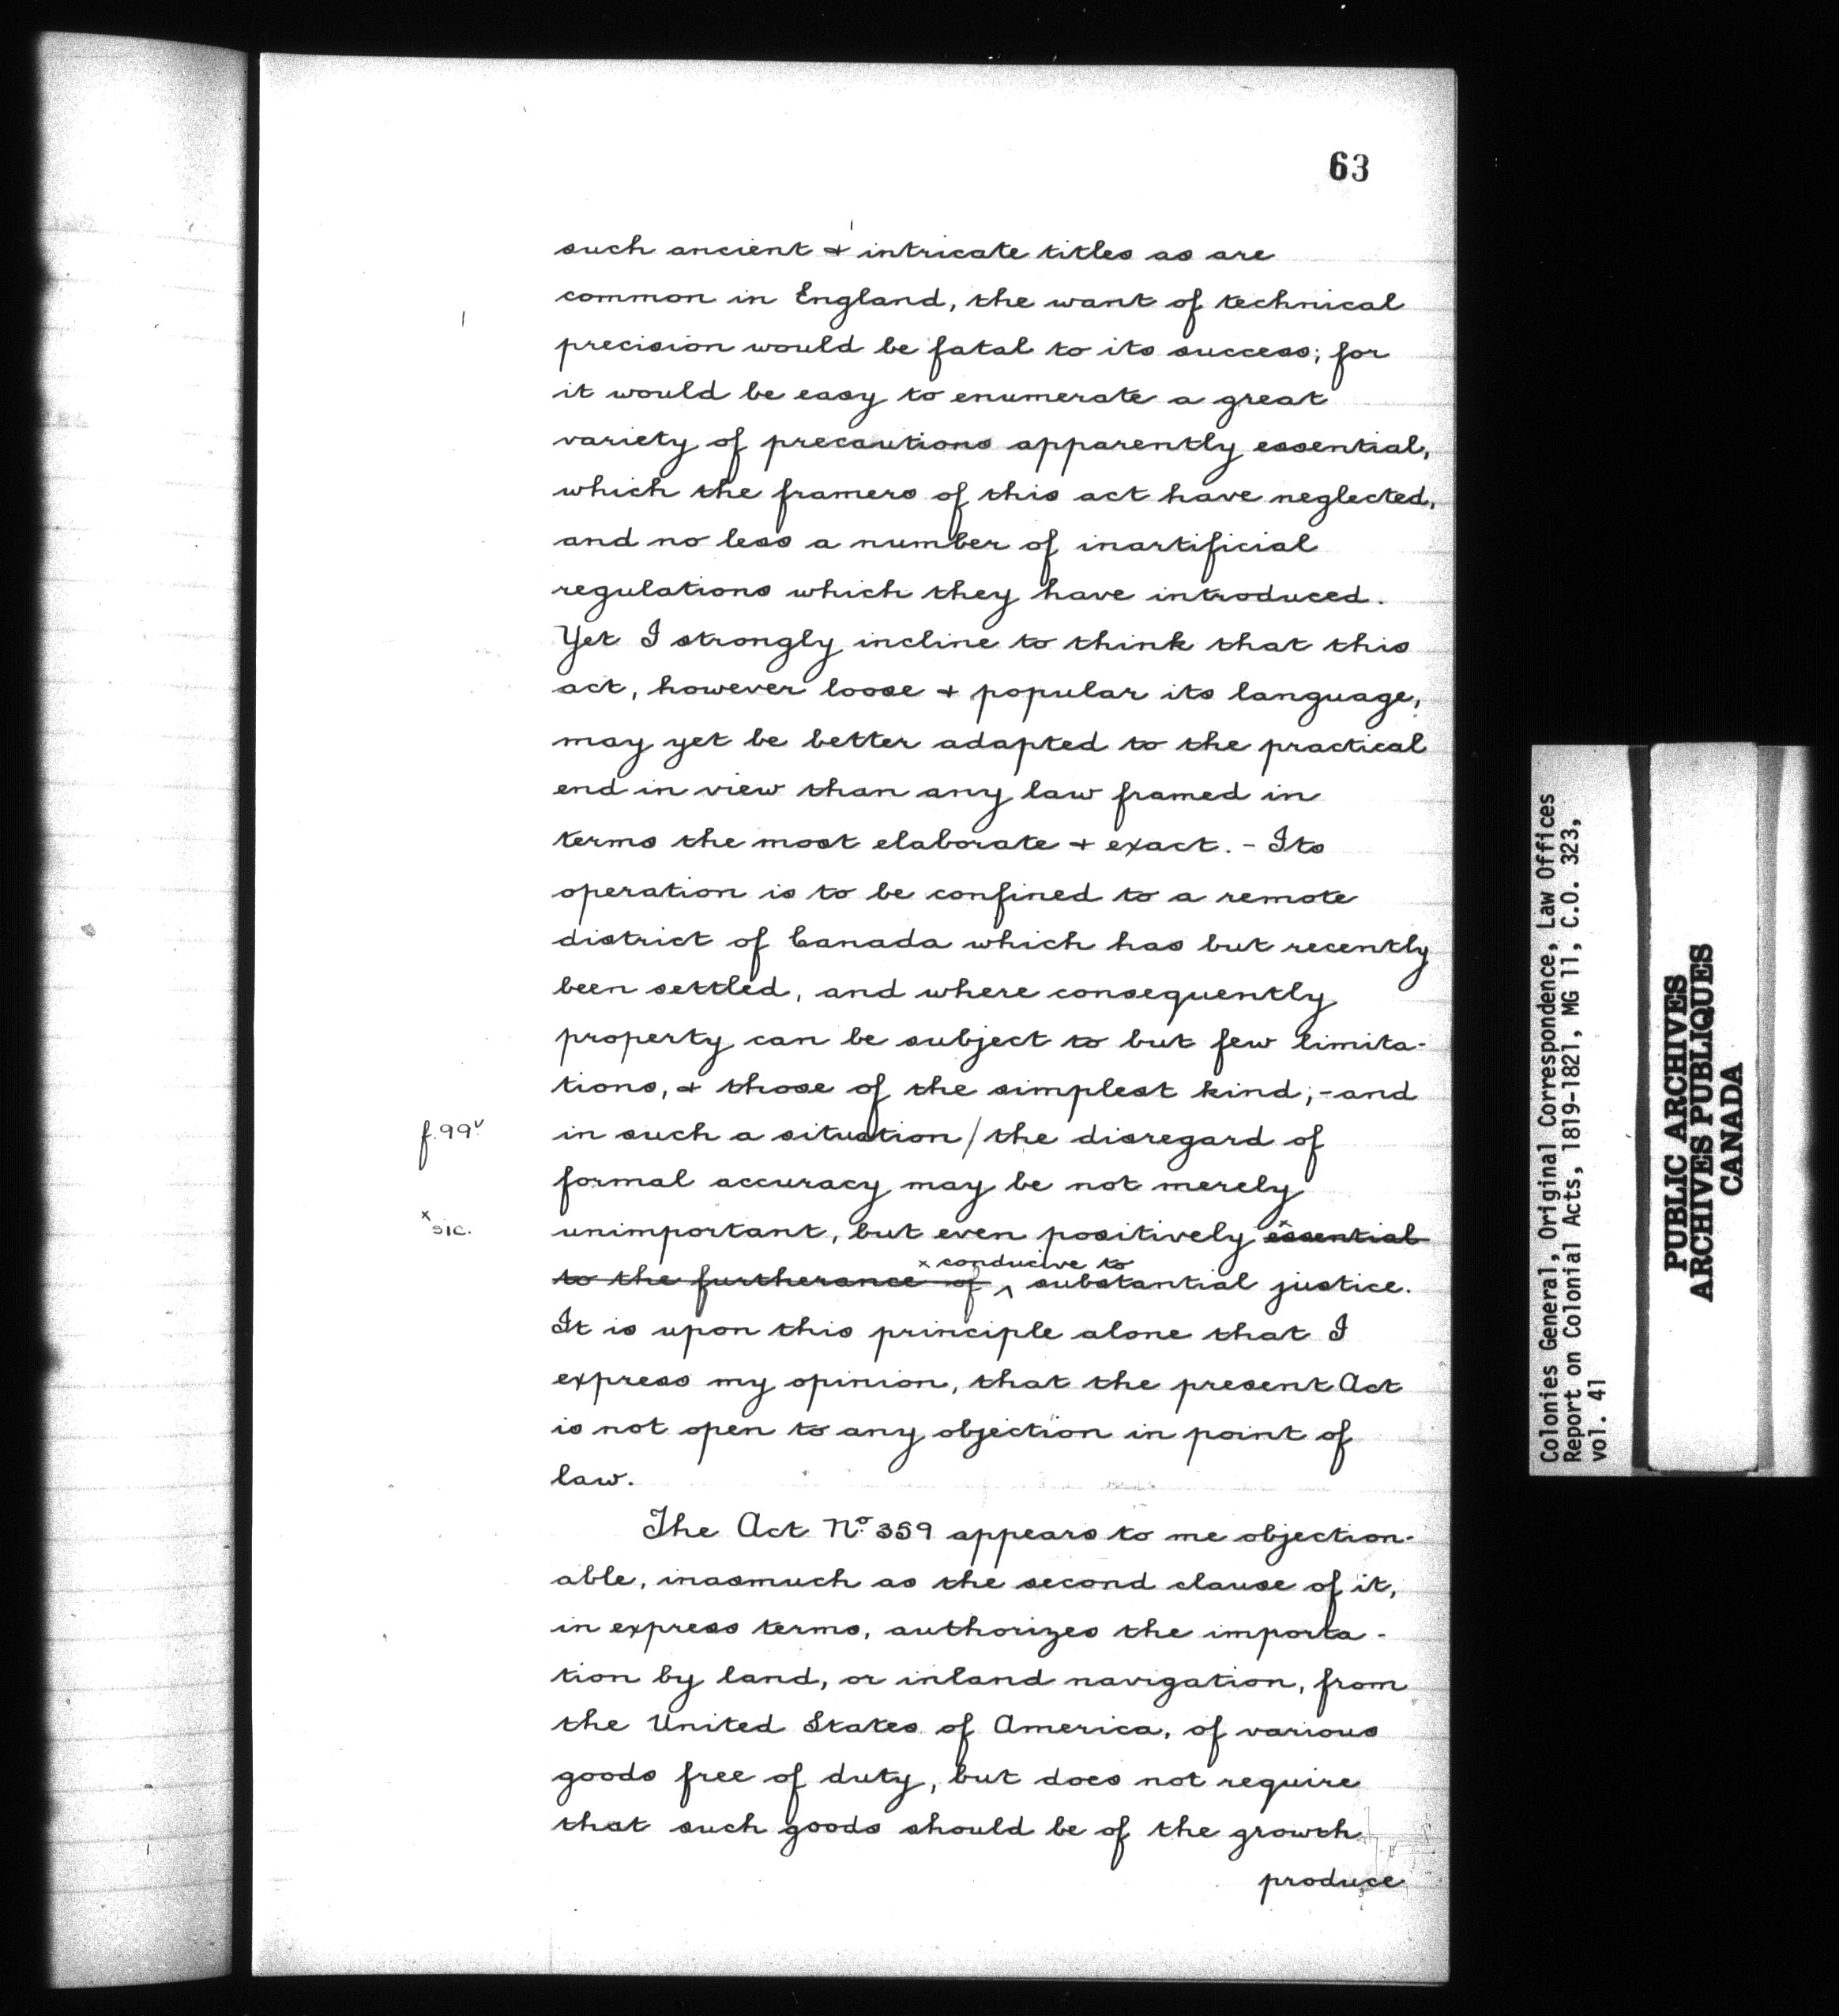 63
such ancient & intricate titles as are
common in England, the want of technical
precision would be fatal to its success; for
it would be easy to enumerate a great
variety of precautions apparently essential,
which the framers of this act have neglected,
and no less a number of inartificial
regulations which they have introduced.
Yet I strongly incline to think that this
act, however loose & popular its language,
may yet be better adapted to the practical
end in view than any law framed in
terms the most elaborate & exact. - Its
operation is to be confined to a remote
district of Canada which has but recently
been settled, and where consequently
property can be subject to but few limita-
tions, & those of the simplest kind; - and
f.99v. in such a situation / the disregard of
formal accuracy may be not merely
x sic. unimportant, but even positively x essential
to the furtherance of x conducive to substantial justice.
It is upon this principle alone that I
express my opinion, that the present Act
is not open to any objection in point of
law.
The Act No. 359 appears to me objection-
able, inasmuch as the second clause of it,
in express terms, authorizes the importa-
tion by land, or inland navigation, from
the United States of America, of various
goods free of duty, but does not require
that such goods should be of the growth
produce
Colonies General, Original Correspondence, Law Offices
Report on Colonial Acts, 1819-1821, MG 11, C.O. 323,
vol. 41
PUBLIC ARCHIVES
ARCHIVES PUBLIQUES
CANADA